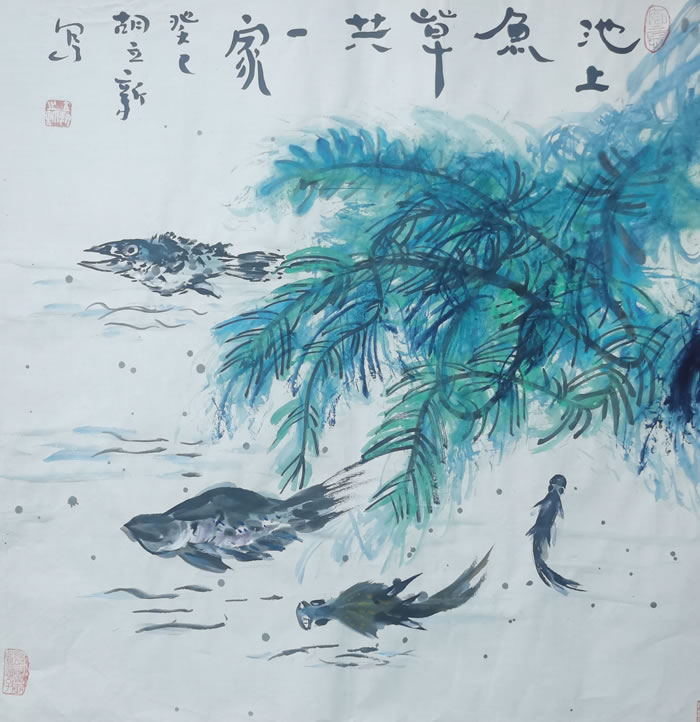 池上魚草共一家
癸巳
胡立新
写